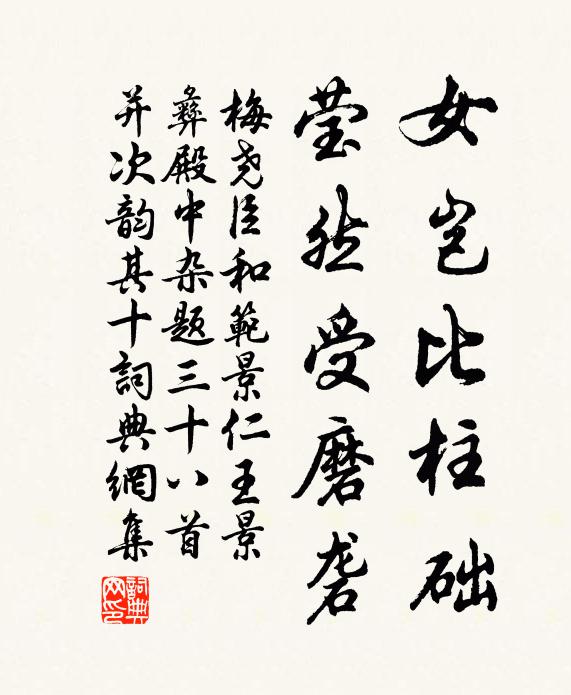 女岂比柱础
莹然受磨砻
梅尧臣和範景仁王景
彝殿中杂题三十八首
并次韵其十詞典網集
詞典网印